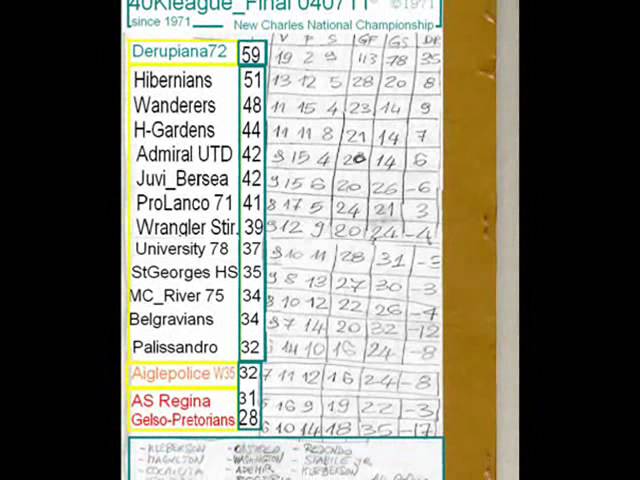 40Kleague_Final 040711 ©1971
since 1971 New Charles National Championship
V P S GF GS DR
Derupiana72 59 19 2 9 113 78 35
Hibernians 51 13 12 5 28 20 8
Wanderers 48 11 15 4 23 14 9
H-Gardens 44 11 11 8 21 14 7
Admiral UTD 42 9 15 4 20 14 6
Juvi_Bersea 42 9 15 6 20 26 -6
ProLanco 71 41 8 17 5 24 21 3
Wrangler Stir. 39 9 12 9 20 24 -4
University 78 37 9 10 11 28 31 -3
StGeorges HS 35 9 8 13 27 30 -3
MC_River 75 34 8 10 12 22 26 -4
Belgravians 34 9 7 14 20 32 -12
Palissandro 32 6 14 10 16 24 -8
Aiglepolice W35 32 7 11 12 16 24 -8
AS Regina 31 5 16 9 19 22 -3
Gelso-Pretorians 28 6 10 14 18 35 -17
- KLEBERSON - REDONDO
- HAMILTON - WASHINGTON - STABILE JR.
- ADEMIR - KLEBERSON